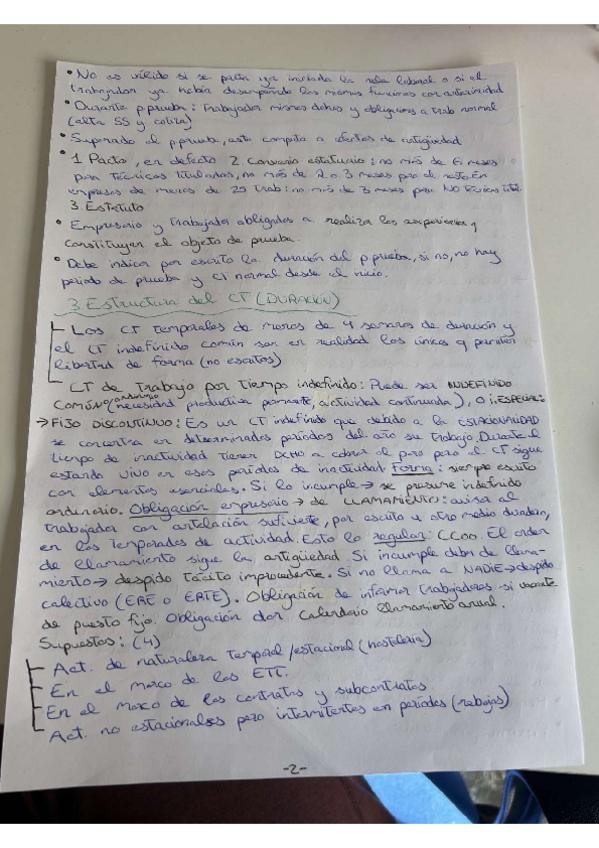 • No es válido si se pacta ya iniciada la rela laboral o si el
trabajador ya había desempeñado las mismas funciones con anterioridad
• Durante p prueba: trabajador mismos dchos y obligacions a trab normal
(alta SS y cotiza)
• Superado el p prueba, esto computa a efectos de antigüedad
• 1 Pacto, en defecto 2. Convenio estatutario: no más de 6 meses
para Técnicos titulados, no más de 2 o 3 meses para el resto. En
empresas de menos de 25 trab: no más de 3 meses para NO técnicos titul.
3. Estatuto
• Empresario y trabajador obligados a realizar las experiencias q
constituyan el objeto de prueba.
• Debe indicar por escrito la duración del p prueba, si no, no hay
periodo de prueba y CT normal desde el inicio.
3 Estructura del CT (DURACIÓN)
Los CT temporales de menos de 4 semanas de duración y
el CT indefinido común son en realidad los únicos q permiten
libertad de forma (no escritos)
CT de Trabajo por tiempo indefinido: Puede ser INDEFINIDO
COMÚN/ordinario (necesidad productiva permanente, actividad continuada), o i. ESPECIAL:
→ FIJO DISCONTINUO: Es un CT indefinido que debido a la ESTACIONARIDAD
se concentra en determinados periodos del año su trabajo. Durante el
tiempo de inactividad tienen DCHO a cobrar el paro pero el CT sigue
estando vivo en esos periodos de inactividad. Forma: siempre escrito
con elementos esenciales. Si lo incumple → se presume indefinido
ordinario. Obligación empresario → de LLAMAMIENTO: avisa al
trabajador con antelación suficiente, por escrito u otro medio
en las temporadas de actividad. Esto lo regulan CCOO. El orden
de llamamiento sigue la antigüedad. Si incumple deber de llama-
miento → despido tácito improcedente. Si no llama a NADIE → despido
colectivo (ERE o ERTE). Obligación de informar trabajadores si vacante
de puesto fijo. Obligación dar calendario llamamiento anual.
Supuestos: (4)
Act. de naturaleza temporal/estacional (hostelería)
En el marco de las ETT.
En el marco de las contratas y subcontratas
Act. no estacionales pero intermitentes en periodos (rebajas)
-2-